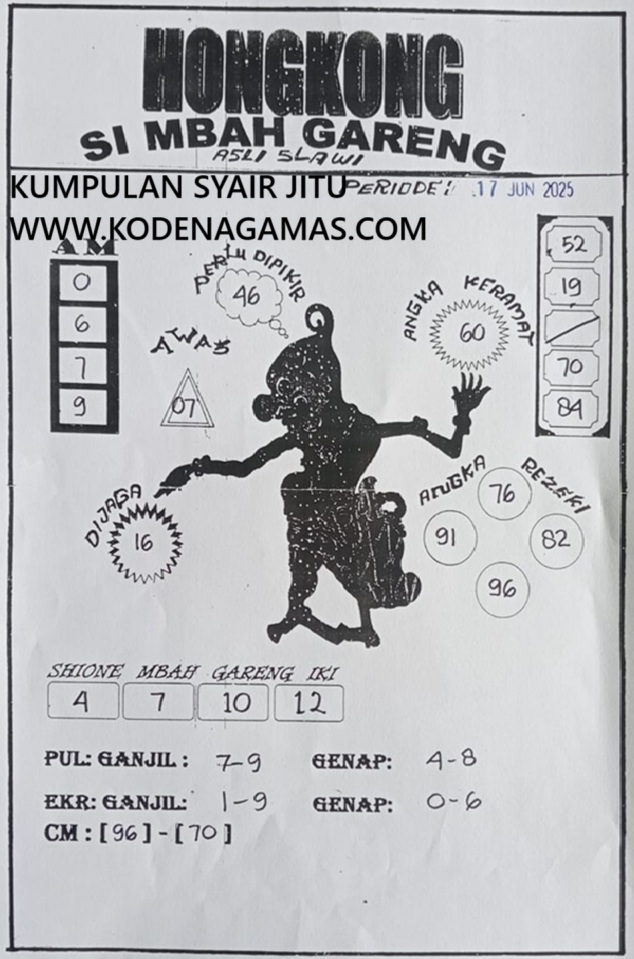 HONGKONG
SI MBAH GARENG
ASLI SLAWI
KUMPULAN SYAIR JITU
PERIODE: 17 JUN 2025
WWW.KODENAGAMAS.COM
AM
0
6
7
9
PERLU DIPIKIR
46
AWAS
07
ANGKA KERAMAT
60
52
19
70
84
DIJAGA
16
ANGKA REZEKI
76
91
82
96
SHIONE MBAH GARENG IKI
4 7 10 12
PUL: GANJIL: 7-9 GENAP: 4-8
EKR: GANJIL: 1-9 GENAP: 0-6
CM : [96] - [70]